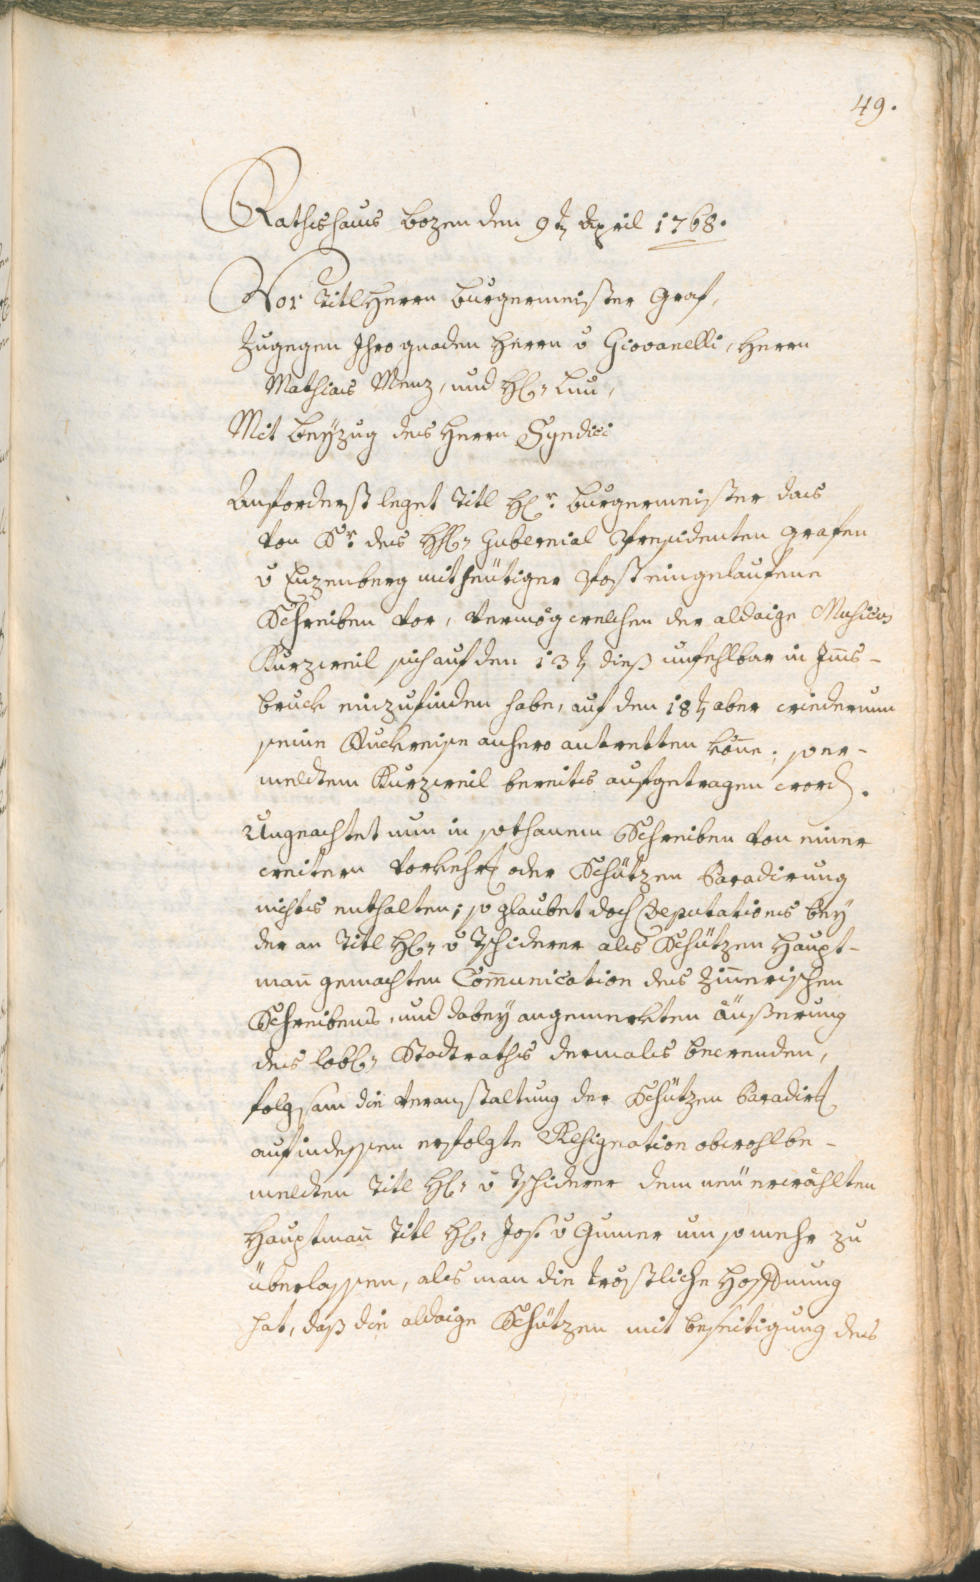 49.
Rathshaus Bozen den 9t April 1768.
Vor Titl Herrn Burgermeister Graf,
Zugegen Ihro gnaden Herrn v Giovanelli, Herrn
Mathias Menz, und H: Lun,
Mit Beyzug des Herrn Syndici
Anforderst leget Titl Hr: Burgermeister das
von Sr: des H: Gubernial Præsidenten Grafen
v Enzenberg mit heütiger Post eingelaufene
Schreiben vor, vermög welchem der aldaige Musicus
Kurzweil sich auf den 13t dieß unfehlbar in Ins-
bruck einzufinden habe, auf den 18t aber wiederum
seine Ruckreise anhero antretten köne; so er-
meldtem Kurzweil bereits aufgetragen word.
Ungeachtet nun in sothanem Schreiben von einer
weitern Vorkehr oder Schützen Baradirung
nichts enthalten; so glaubet doch Deputations bey
der an Titl H: v Tschiderer als Schützen Haupt-
man gemachten Comunication des Zinerischen
Schreibens, und dabey angemerkten äußerung
des lobl: Stadtraths dermals bewenden,
folgsam die veranstaltung der Schützen Baradir
auf indessen erfolgte Resignation obwohlbe-
meldten Titl H: v Tschiderer dem neü erwählten
Hauptman Titl H: Jos: v Gumer um so mehr zu
überlassen, als man die tröstliche Hoffnung
hat, daß die aldaige Schützen mit beseitigung des